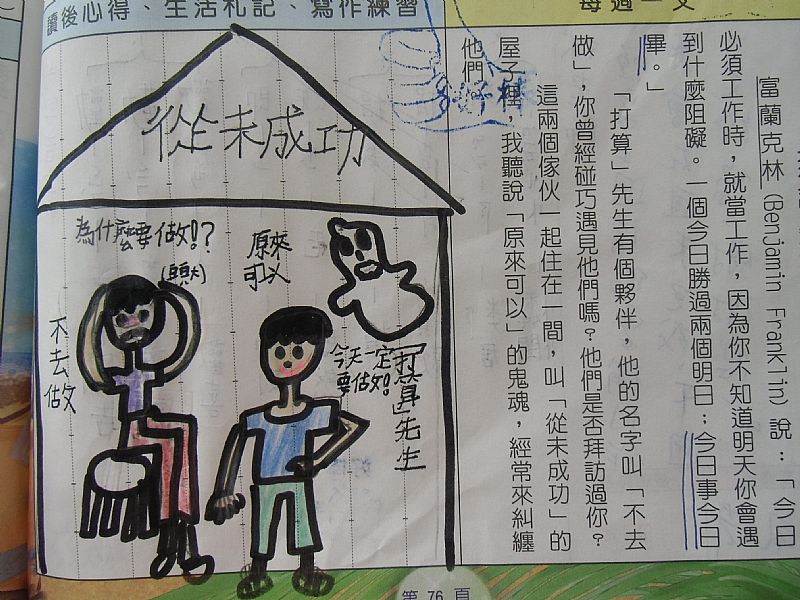 讀後心得、生活札記、寫作練習
每週一文
富蘭克林(Benjamin Franklin)說:「今日
必須工作時,就當工作,因為你不知道明天你會遇
到什麼阻礙。一個今日勝過兩個明日;今日事今日
畢。」
「打算」先生有個夥伴,他的名字叫「不去
做」,你曾經碰巧遇見他們嗎?他們是否拜訪過你?
這兩個傢伙一起住在一間,叫「從未成功」的
屋子裡,我聽說「原來可以」的鬼魂,經常來糾纏
他們
從未成功
為什麼要做!?
(頭大)
原來
可以
不去做
今天一定
要做!
「打算」先生
第 76 頁